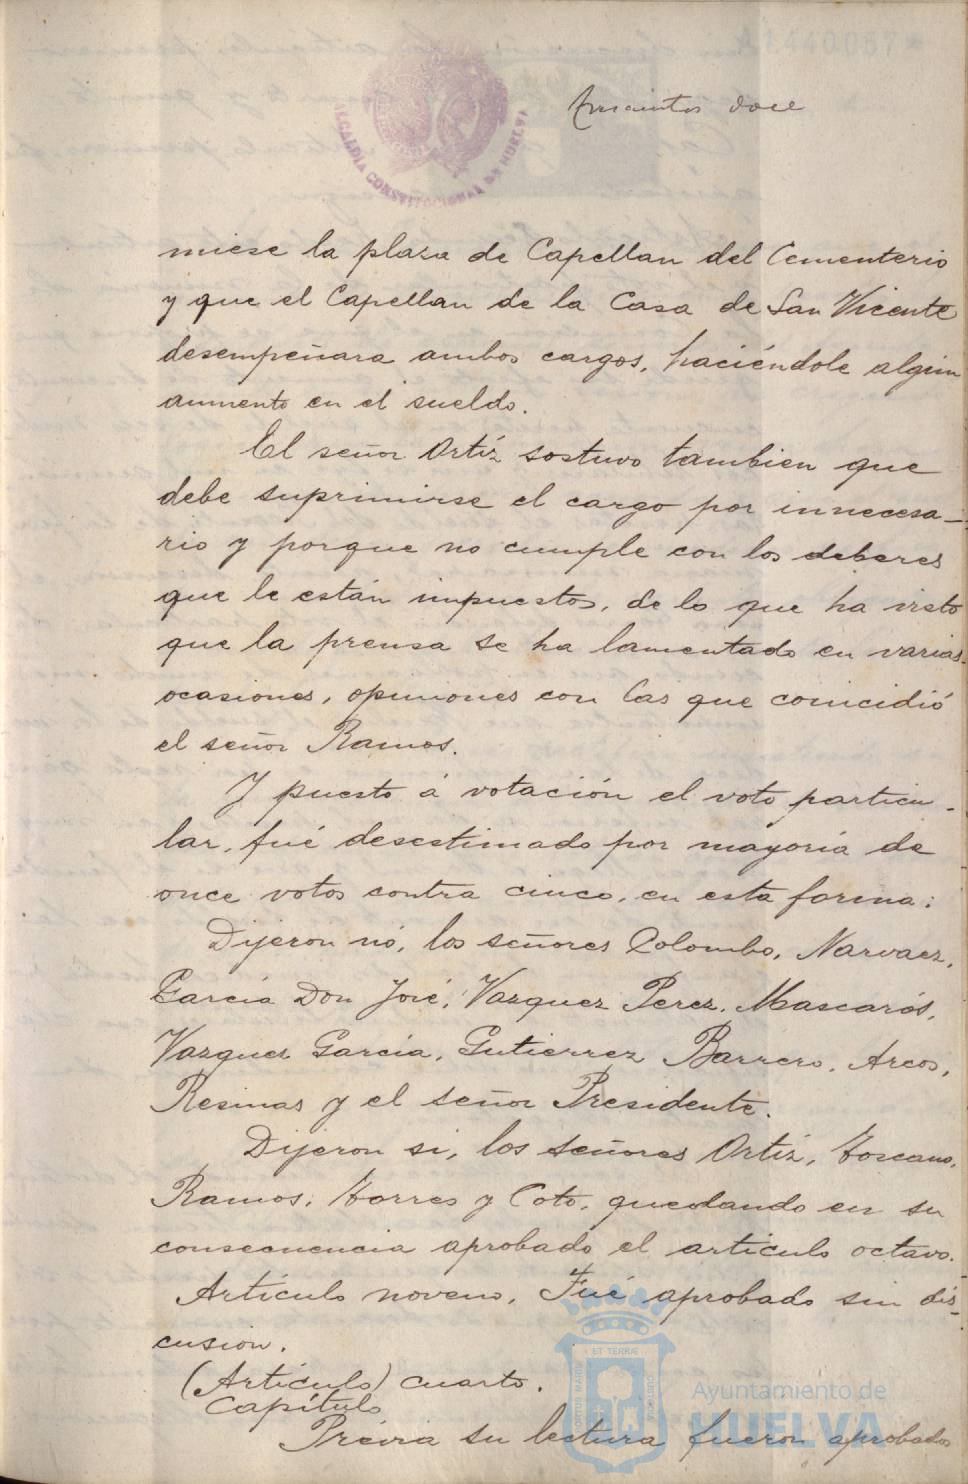 A1440057*
ALCALDIA CONSTITUCIONAL DE HUELVA
doce
miese la plaza de Capellan del Cementerio
y que el Capellan de la Casa de San Vicente
desempeñara ambos cargos, haciéndole algún
aumento en el sueldo.
El señor Ortíz sostuvo tambien que
debe suprimirse el cargo por innecesa-
rio y porque no cumple con los deberes
que le están impuestos, de lo que ha visto
que la prensa se ha lamentado en varias
ocasiones, opiniones con las que coincidió
el señor Ramos.
Y puesto á votación el voto particu-
lar, fué desestimado por mayoría de
once votos contra cinco, en esta forma:
Dijeron nó, los señores Colombo, Narvaez,
García Don José, Vazquez Perez, Mascarós,
Vazquez García, Gutierrez Barrero, Arcos,
Resinas y el señor Presidente.
Dijeron si, los señores Ortíz, Toscano,
Ramos, Torres y Coto, quedando en su
consecuencia aprobado el artículo octavo.
Artículo noveno. Fué aprobado sin dis-
cusion.
(Artículo) cuarto.
Capítulo
Prévia su lectura fueron aprobados
ET TERRÆ
PORTUS MARIS
CUSTODIA
Ayuntamiento de
HUELVA